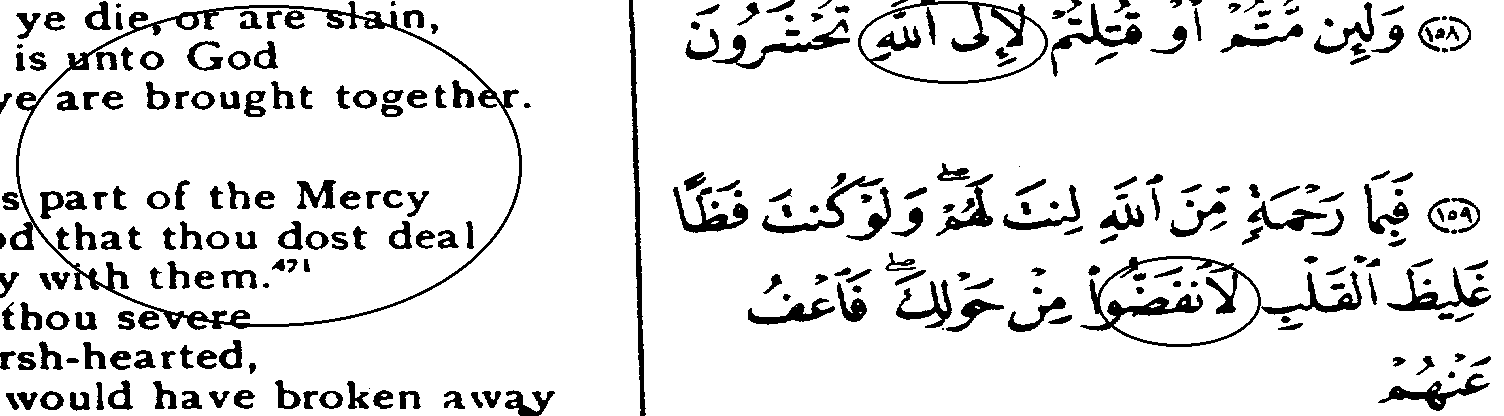 ye die, or are slain,
is unto God
ye are brought together.
part of the Mercy
that thou dost deal
with them.⁴⁷¹
thou severe
rsh-hearted,
would have broken away
١٥٨ وَلَئِن مُّتُّمْ أَوْ قُتِلْتُمْ لَإِلَى ٱللَّهِ تُحْشَرُونَ
١٥٩ فَبِمَا رَحْمَةٍ مِّنَ ٱللَّهِ لِنتَ لَهُمْ ۖ وَلَوْ كُنتَ فَظًّا
غَلِيظَ ٱلْقَلْبِ لَٱنفَضُّوا۟ مِنْ حَوْلِكَ ۖ فَٱعْفُ
عَنْهُمْ